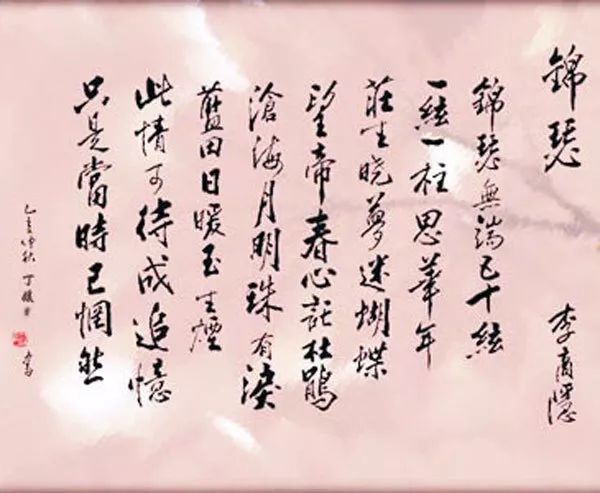 錦瑟 李商隱
錦瑟無端五十絃
一絃一柱思華年
莊生曉夢迷蝴蝶
望帝春心託杜鵑
滄海月明珠有淚
藍田日暖玉生煙
此情可待成追憶
只是當時已惘然
乙亥仲秋 丁 書